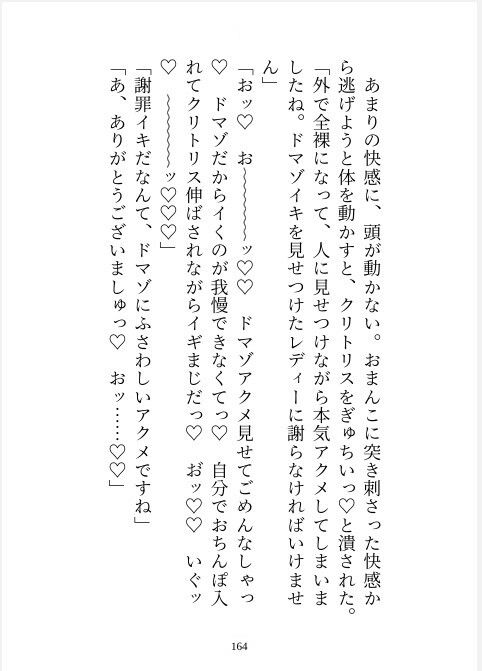 あまりの快感に、頭が動かない。おまんこに突き刺さった快感か
ら逃げようと体を動かすと、クリトリスをぎゅちいっ♡と潰された。
「外で全裸になって、人に見せつけながら本気アクメしてしまいま
したね。ドマゾイキを見せつけたレディーに謝らなければいけませ
ん」
「おッ♡　お〜〜〜〜〜ッ♡♡　ドマゾアクメ見せてごめんなしゃっ
♡　ドマゾだからイくのが我慢できなくてっ♡　自分でおちんぽ入
れてクリトリス伸ばされながらイギまじだっ♡　お゙ッ♡♡　いぐッ
♡　〜〜〜〜〜ッ♡♡♡」
「謝罪イキだなんて、ドマゾにふさわしいアクメですね」
「あ、ありがとうございましゅっ♡　おッ……♡♡」
164